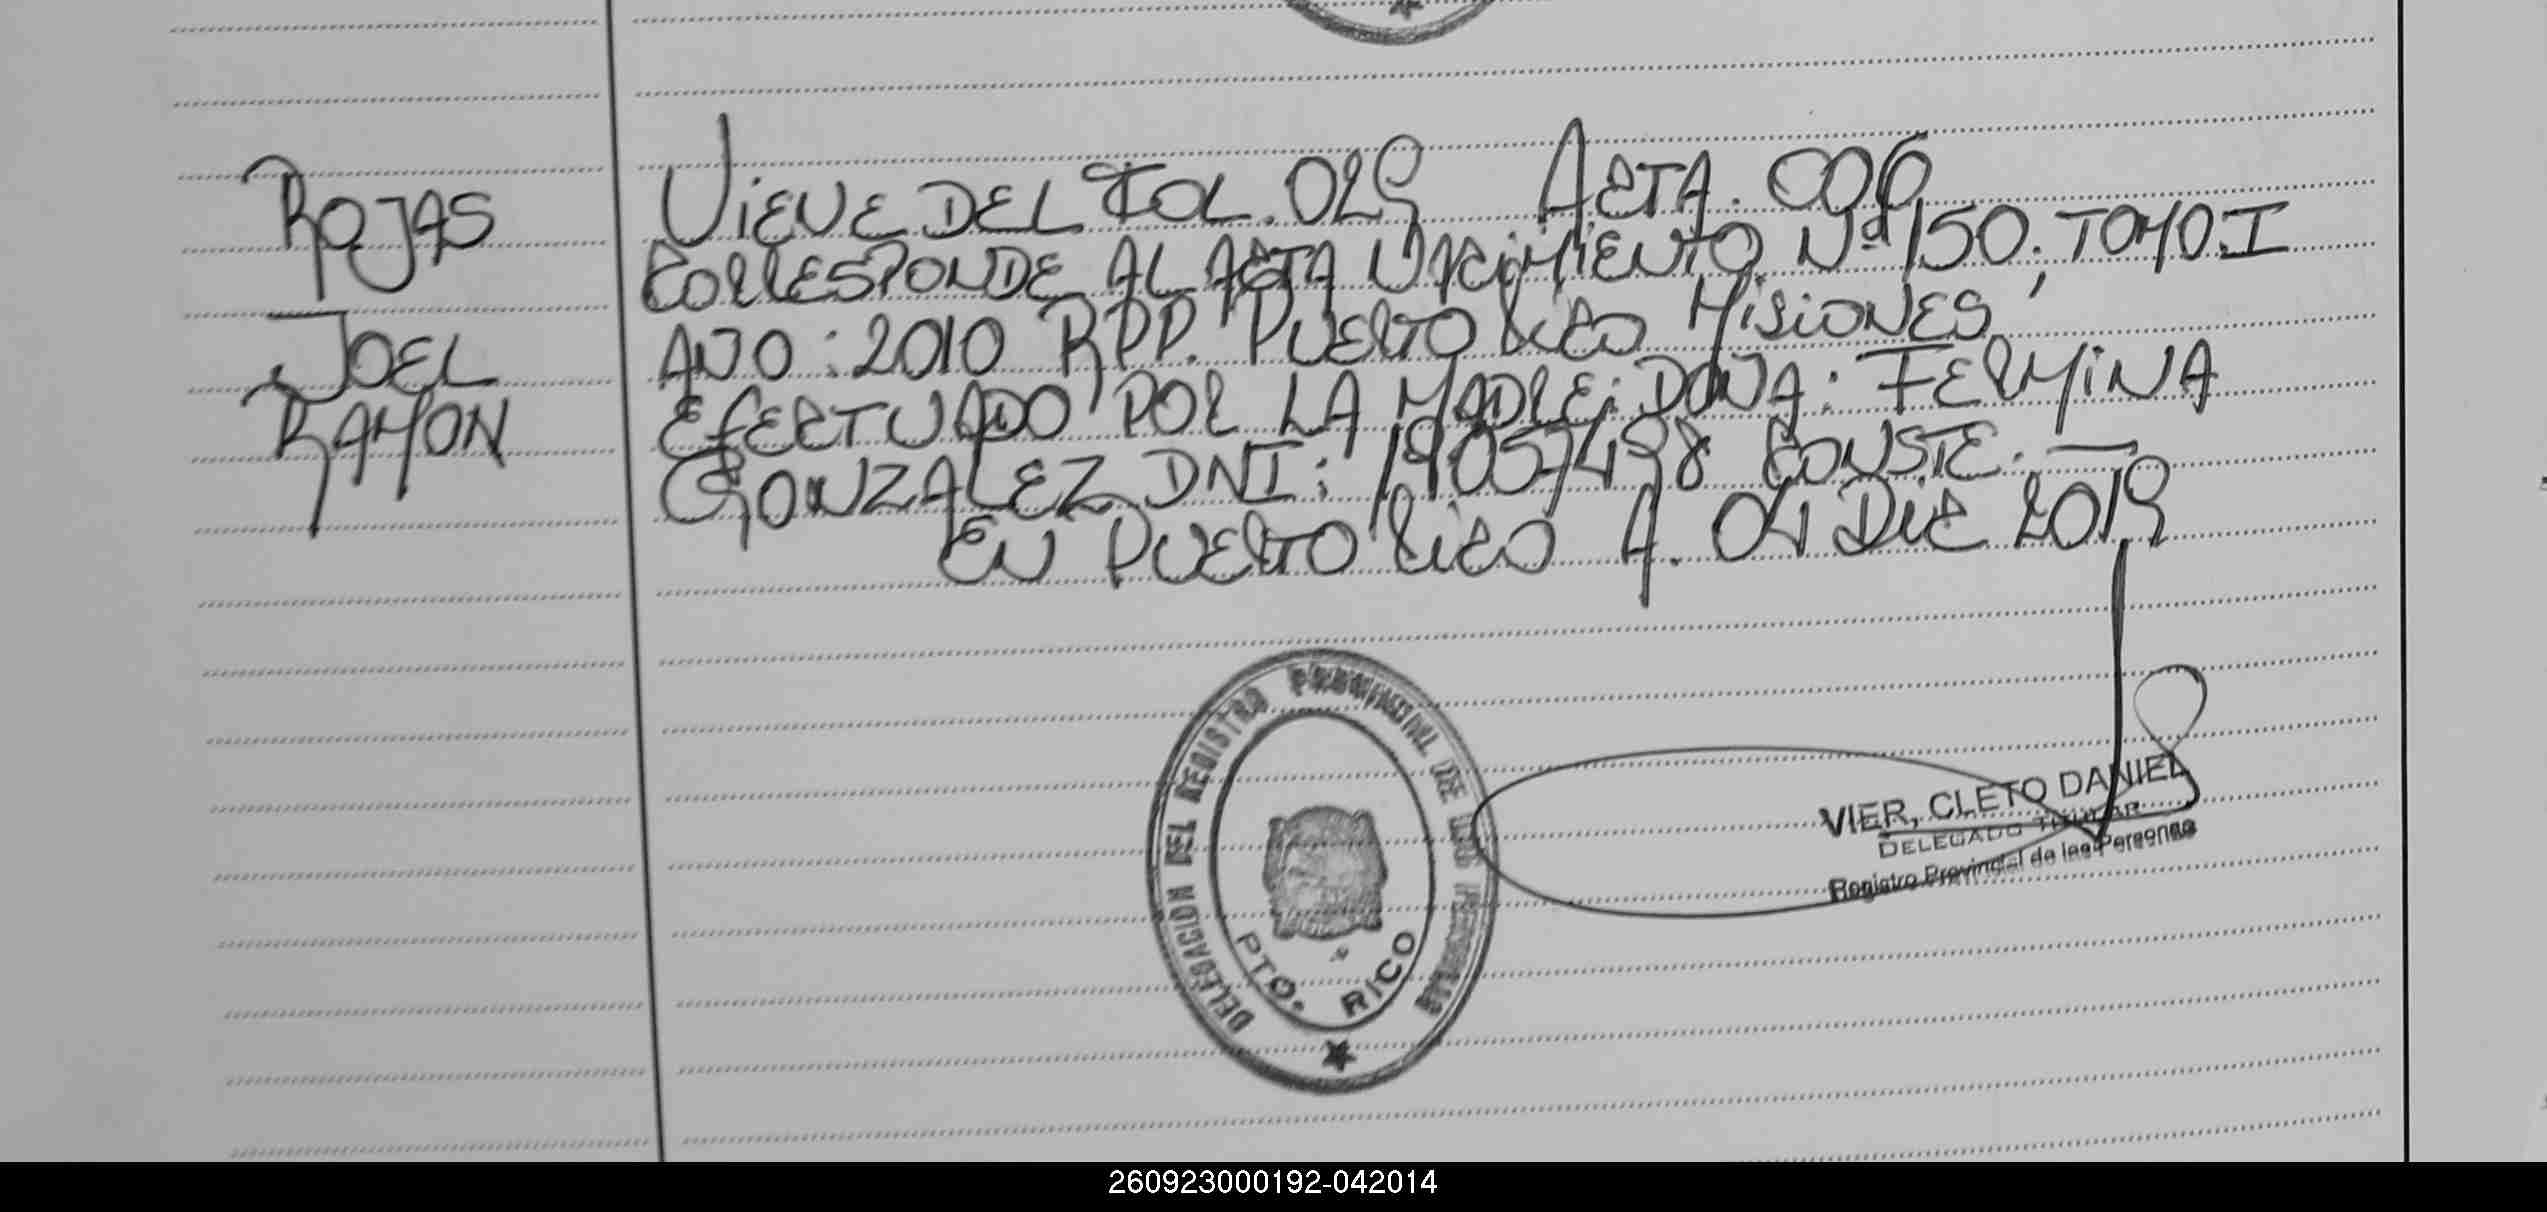 ROJAS
JOEL
RAMON
VIENE DEL FOL. 029 ACTA. 006
CORRESPONDE AL ACTA NACIMIENTO Nº 150. TOMO. I
AÑO: 2010 RPP. PUERTO RICO MISIONES,
EFECTUADO POR LA MADRE: DOÑA: FERMINA
GONZALEZ DNI: 19057498 CONSTE. —
EN PUERTO RICO A. 04 DIC 2019
DELEGACION DEL REGISTRO PROVINCIAL DE LAS PERSONAS
PTO. RICO
VIER, CLETO DANIEL
DELEGADO TITULAR
Registro Provincial de las Personas
260923000192-042014